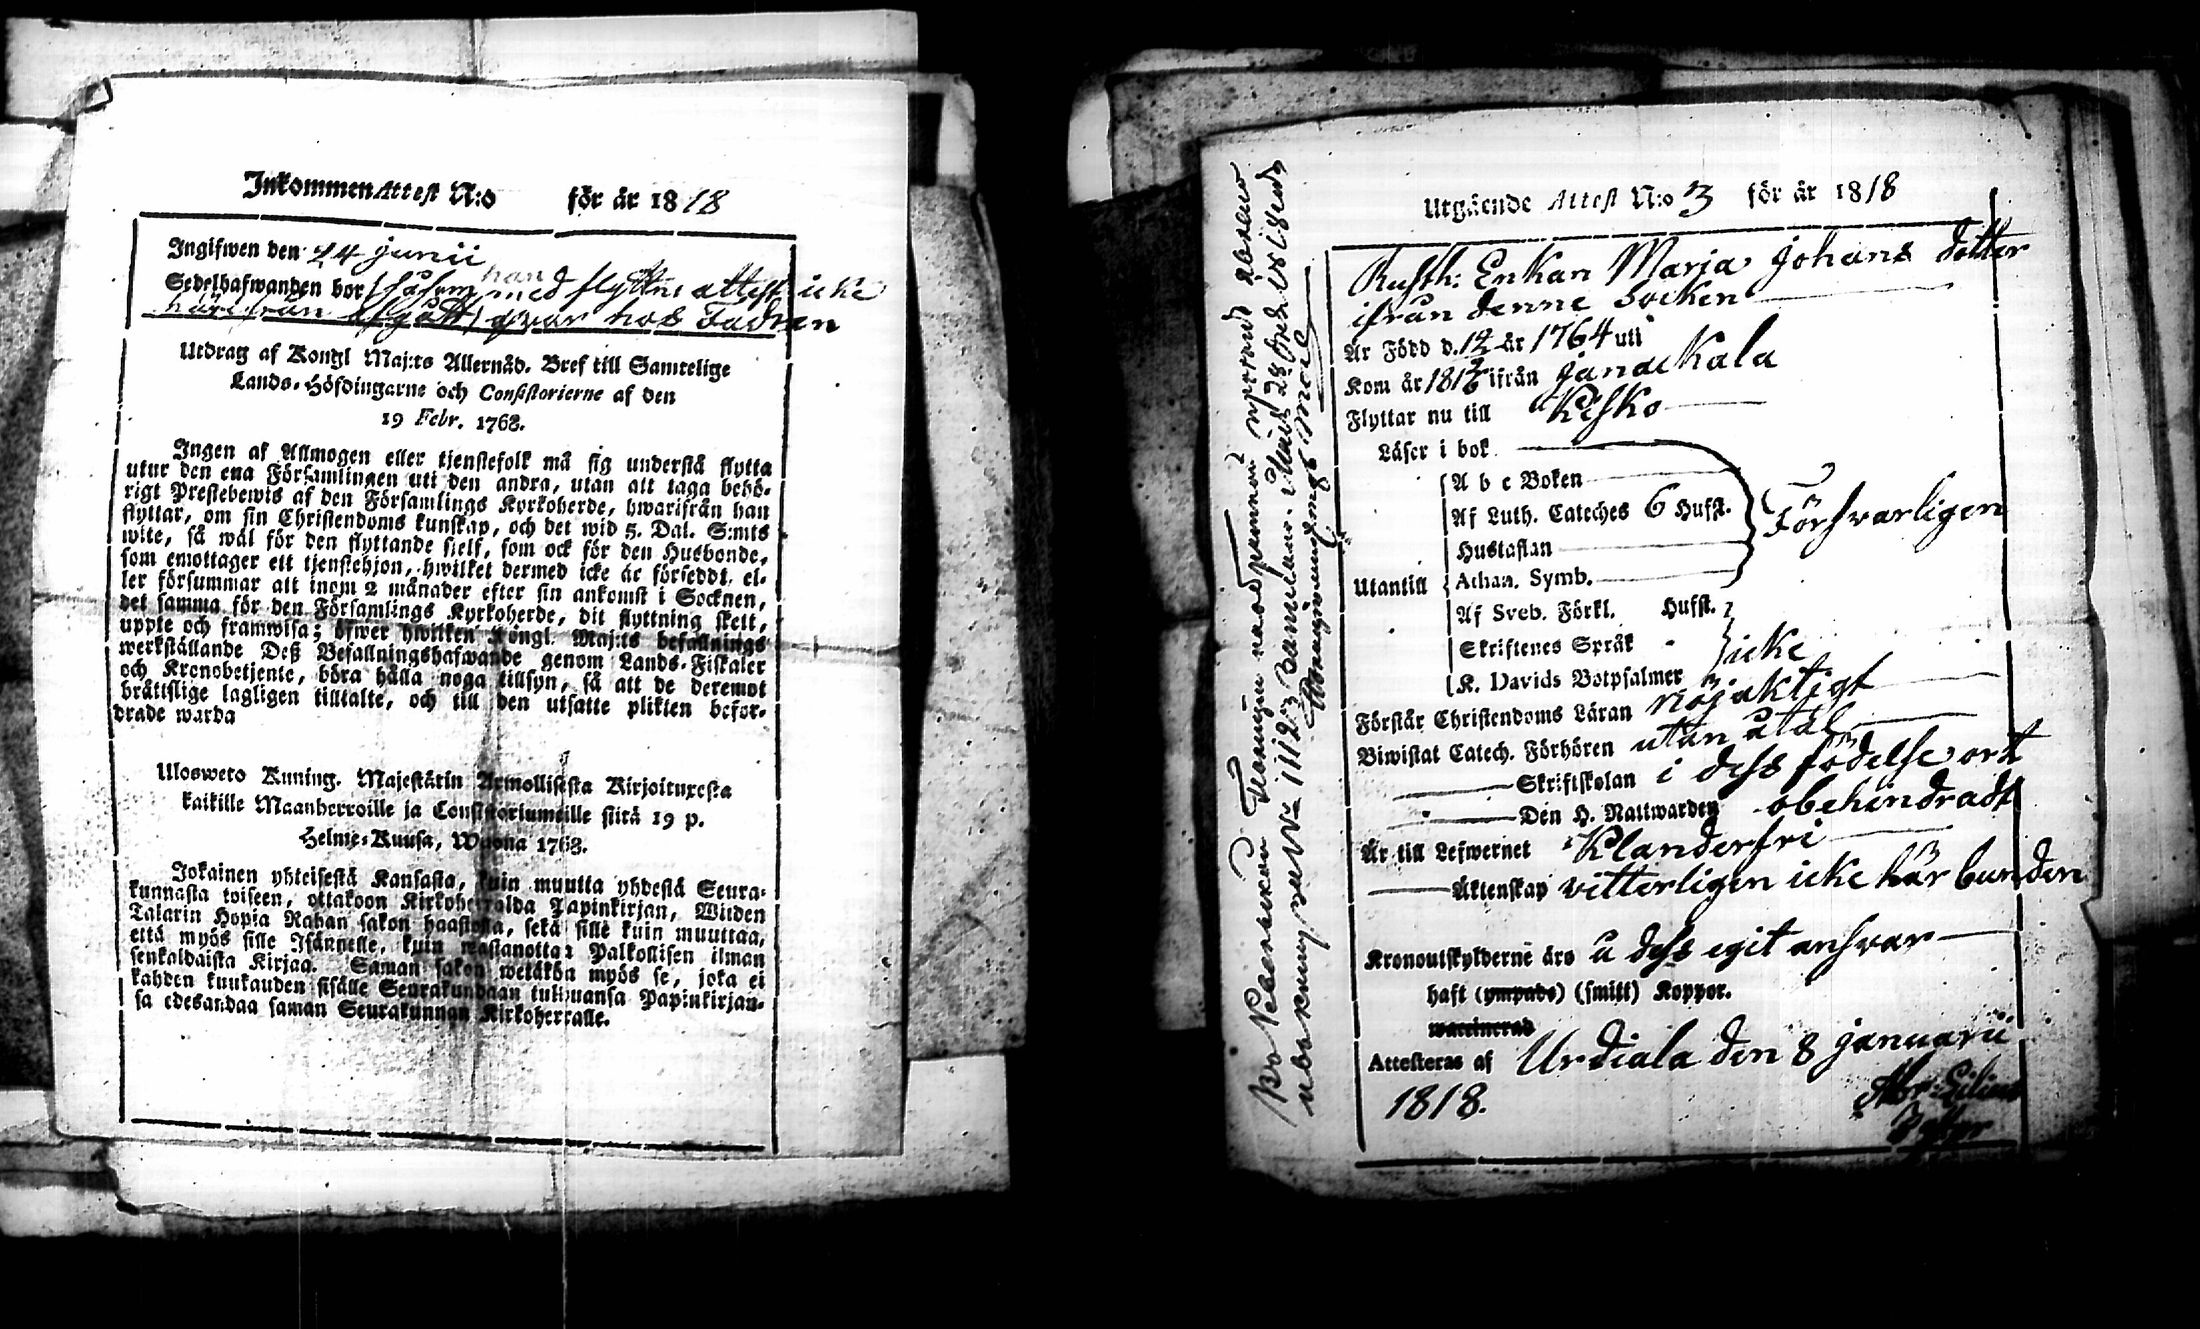 Inkommen Attest N:o för år 1818
Ingifwen den 24 junii
Sedelhafwanden bor (såsom med flyttnis attest icke
härifrån afgått) qvar hos Fadren
Utdrag af Kongl Maj:ts Allernåd. Bref till Samtelige
Lands-Höfdingarne och Consistorierne af den
19 Febr. 1763.
Ingen af Allmogen eller tjenstefolk må sig understå flytta
utur den ena Församlingen uti den andra, utan att taga behö-
rigt Prestebewis af den Församlings Kyrkoherde, hwarifrån han
flyttar, om sin Christendoms kunskap, och det wid 5. Dal. S:mts
wite, så wäl för den flyttande sielf, som ock för den Husbonde,
som emottager ett tjenstehjon, hwilket dermed icke är förseddt, el-
ler försummar att inom 2 månader efter sin ankomst i Socknen,
det samma för den Församlings Kyrkoherde, dit flyttning skett,
uppte och framwisa; öfwer hwilken Kongl. Maj:ts befallnings
werkställande Deß Befallningshafwande genom Lands-Fiskaler
och Kronobetjente, böra hålla noga tillsyn, så att de deremot
bråttslige lagligen tilltalte, och till den utsatte plikten befor-
drade warda
Ulosweto Kuning. Majestätin Armollisesta Kirjoituxesta
kaikille Maanherroille ja Consistoriumeille siitä 19 p.
Helme-Kuusa, Wuona 1763.
Jokainen yhteisestä Kansasta, kuin muutta yhdestä Seura-
kunnasta toiseen, ottakoon Kirkoherralda Papinkirjan, Wiiden
Talarin Hopia Rahan sakon haastolla, sekä sille kuin muuttaa,
että myös sille Isännelle, kuin wastanottaa Palkollisen ilman
senkaldaista Kirjaa. Saman sakon wetäkön myös se, joka ei
kahden kuukauden sisälle Seurakundaan tultuansa Papinkirjan-
sa edesandaa saman Seurakunnan Kirkoherralle.
Utgående Attest N:o 3 för år 1818
Rusth: Enkan Maria Johans dotter
ifrån denne Socken
Är Född d. 12 år 1764 uti
Kom år 1813 ifrån Janackala
Flyttar nu till Kisko
Läser i bok
A b c Boken
Af Luth. Cateches 6 Hufst.
Försvarligen
Hustaflan
Utantill Athan. Symb.
Af Sveb. Förkl. Hufst.
Skriftenes Språk
icke
K. Davids Botpsalmer
Förstår Christendoms Läran nöjaktigt
Biwistat Catech. Förhören utan åtal
Skriftskolan i dess födelse ort
Den H. Nattwarden obehindradt
Är till Lefwernet Klanderfri
Äktenskap vitterligen icke här bunden
Kronoutskylderne äro å dess egit answar
haft (ympade) (smitt) Koppor.
waccinerad
Attesteras af Urdiala den 8 januarii
1818.